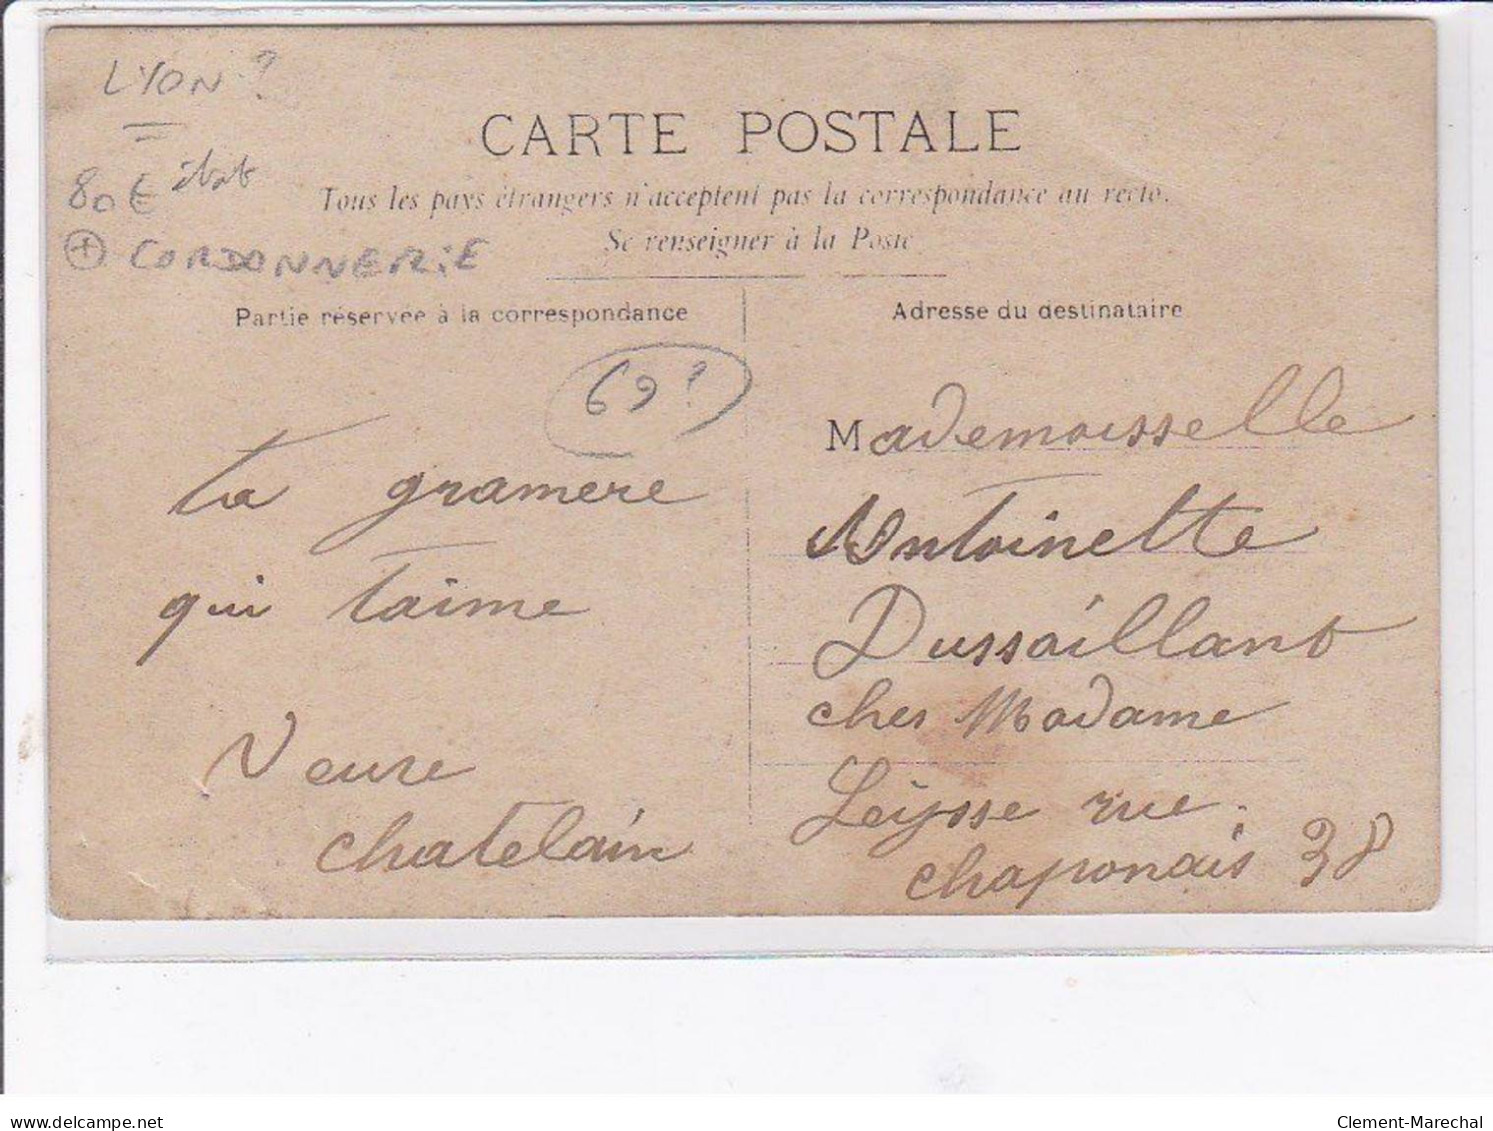 LYON ?
80€ état
+ CORDONNERIE
CARTE POSTALE
Tous les pays étrangers n'acceptent pas la correspondance au recto.
Se renseigner à la Poste
Partie réservée à la correspondance
69 ?
ta gramere
qui taime
Veuve
chatelain
Adresse du destinataire
Mademoisselle
Antoinette
Dussaillant
ches Madame
Leysse rue
chaponais 38
delcampe.net
Clement-Marechal